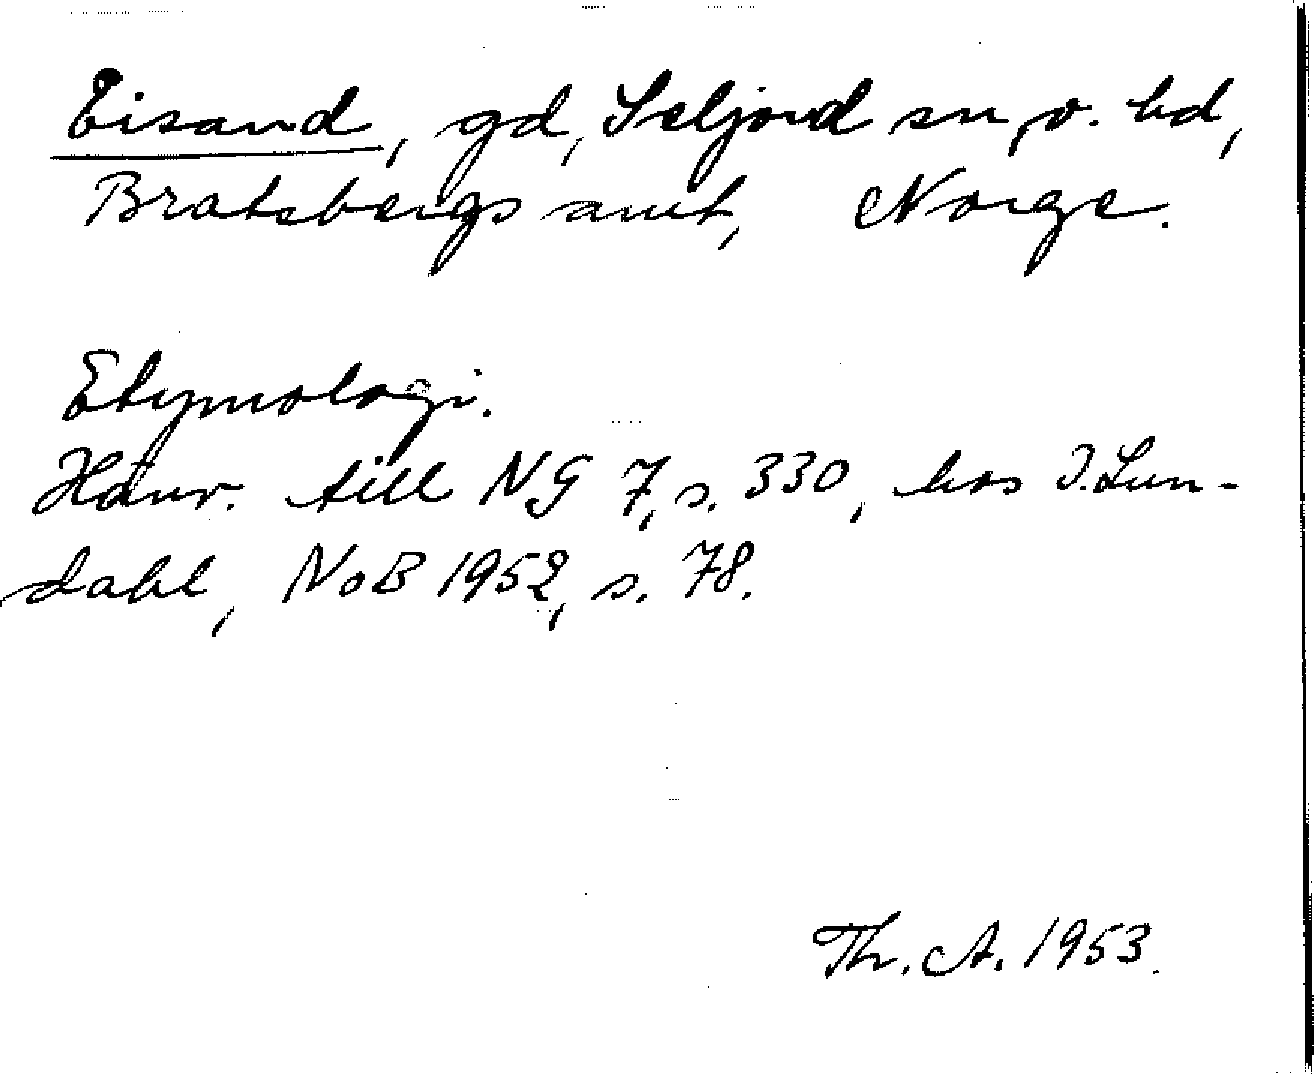 Eisand, gd, Seljord sn, o. hd,
Bratsbergs amt, Norge.
Etymologi.
Hänv. till NG 7, s. 330, hos I. Lun-
dahl, NoB 1952, s. 78.
Th. A. 1953.